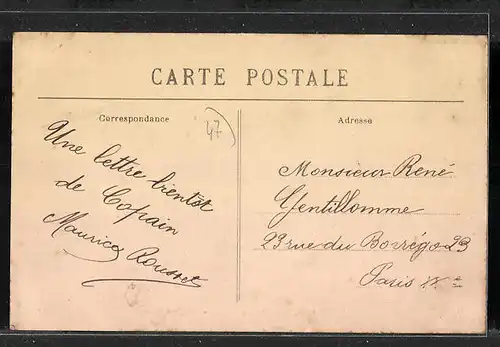 CARTE POSTALE
Correspondance
47
Adresse
Une lettre bientôt
de Copain
Maurice Rousset
Monsieur René
Gentillomme
23 rue du Borrégo 23
Paris